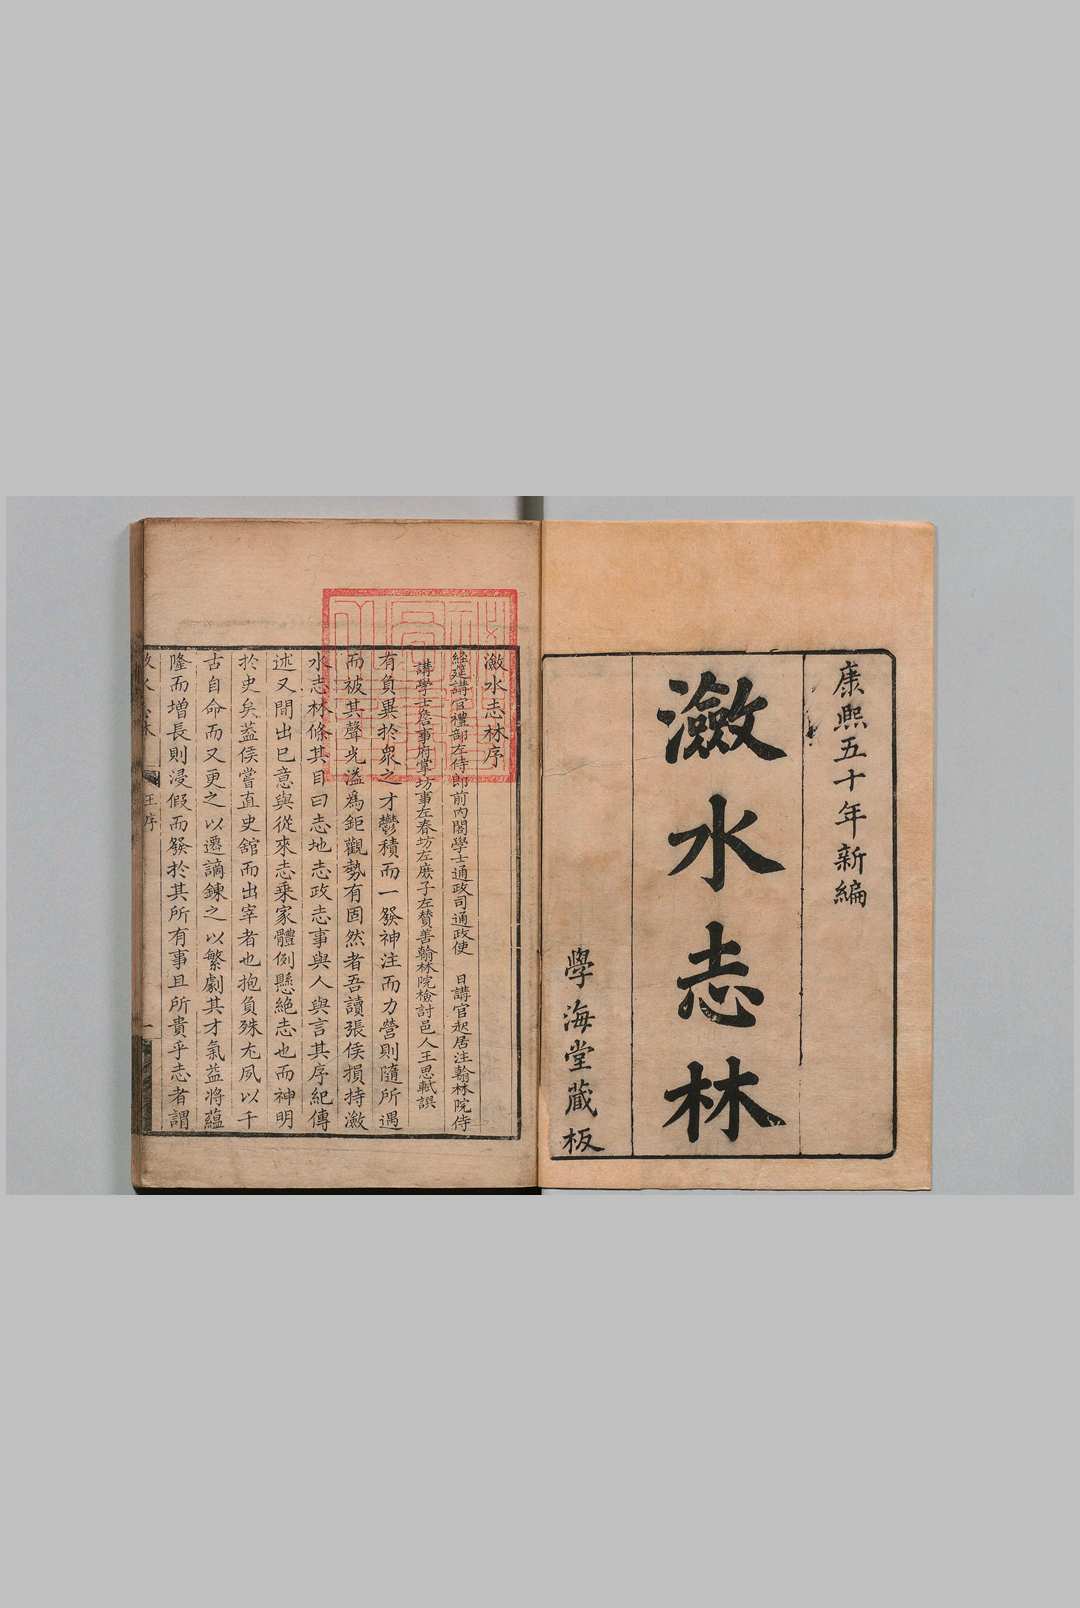 康熙五十年新編
瀲水志林
學海堂藏板
瀲水志林序
經筵講官禮部左侍郎前內閣學士通政司通政使 日講官起居注翰林院侍
講學士詹事府掌坊事左春坊左庶子左贊善翰林院檢討邑人王思軾譔
有負異於衆之才鬱積而一發神注而力營則隨所遇
而被其聲光溢為鉅觀勢有固然者吾讀張侯損持瀲
水志林條其目曰志地志政志事與人與言其序紀傳
述又間出已意與從來志乘家體例懸絶志也而神明
於史矣葢侯嘗直史舘而出宰者也抱負殊尤夙以千
古自命而又更之以遷謫鍊之以繁劇其才氣益將蘊
隆而增長則浸假而發於其所有事且所貴乎志者謂
王序
一